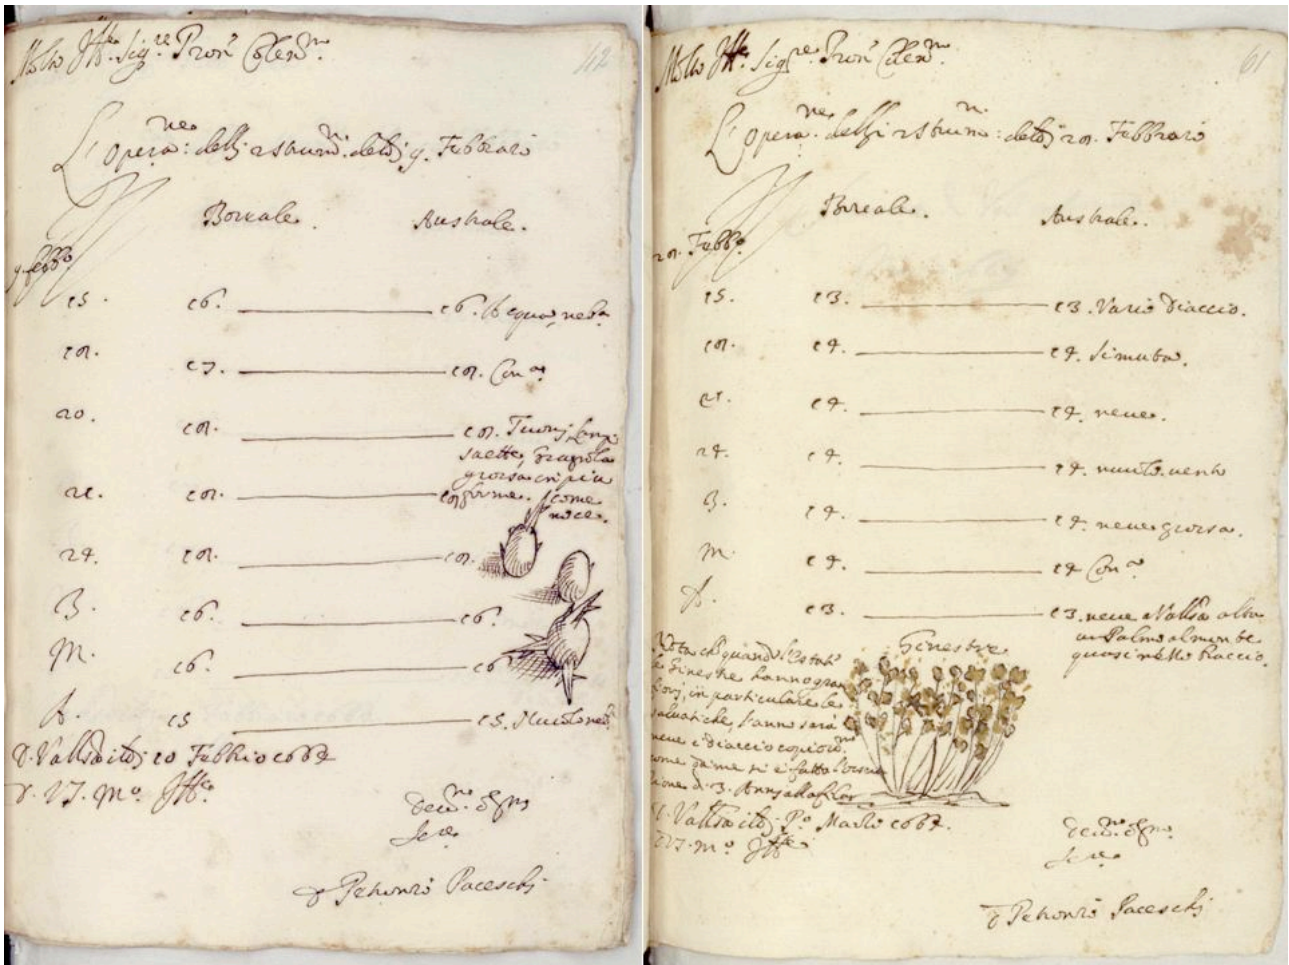 Molto Ill.re Sig.re Pron.e Colen.mo
42
L'opera.ne delli 2 strum.ti delli 9. Febbraro
Boreale. Australe.
9. Febb.o
15. 16. 16. Acqua, neb.a
18. 17. 18. Con.a
20. 18. 18. Tuoni, lampi
saette, Gragnola
grossa in più
21. 18. 18 forme. come
noce.
24. 18. 18.
B. 16. 16.
M. 16. 16
A. 15 15. Nuvolo
D. Vall.a li 10 Febbraio 1664
D. V.S. M.o Ill.re
Ser.e
D. Petronio Paceschi
Molto Ill.re Sig.re Pron.e Colen.mo
61
L'opera.ne delli 2 strum.ti delli 28. Febbraro
Boreale. Australe.
28. Febb.o
15. 13. 13. Vario Diaccio.
18. 14. 14. Simulta.
21. 14. 14. neve.
24. 14. 14. nuvolo. vento
B. 14. 14. neve grossa.
M. 14. 14 Con.a
A. 13. 13. neve a Vall.a alta
un Palmo al monte
quasi mezzo braccio.
Ginestre
Nota che quando l'Estate
le Ginestre hanno gran
fiori, in particulare le
salvatiche, l'anno sarà
neve e diaccio copioso
come da me si è fatto l'osserva
zione di 3. Anni alla fila
D. Vall.a li P.o Marzo 1664.
D. V.S. M.o Ill.re
Ser.e
D. Petronio Paceschi